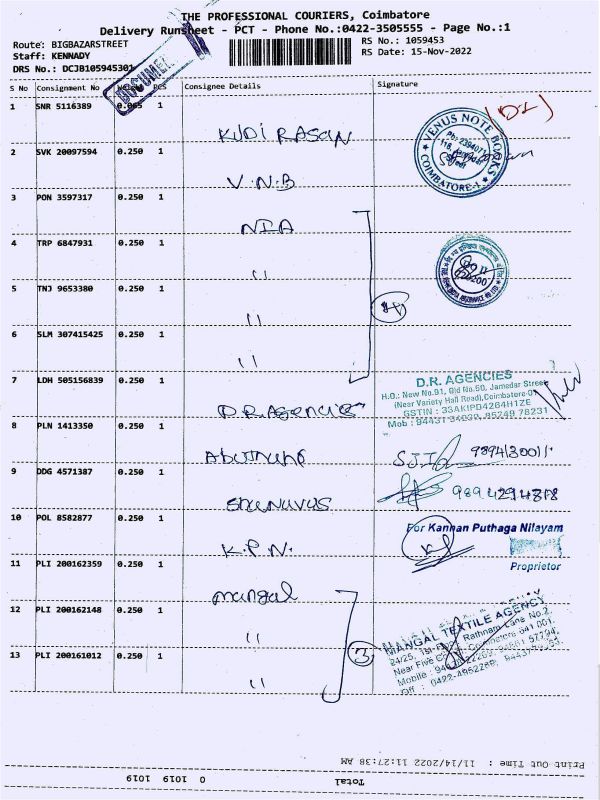 THE PROFESSIONAL COURIERS, Coimbatore
Delivery Runsheet - PCT - Phone No.:0422-3505555 - Page No.:1
Route: BIGBAZARSTREET
RS No.: 1059453
Staff: KENNADY
RS Date: 15-Nov-2022
DRS No.: DCJB105945301
DOCUMENT
S No Consignment No Weight PCS Consignee Details Signature
1 SNR 5116389 0.065 1
KUDI RASAN
VENUS NOTE BOOKS
COIMBATORE-1
2 SVK 20097594 0.250 1
V.N.B
3 PON 3597317 0.250 1
NIA
4 TRP 6847931 0.250 1
"
5 TNJ 9653380 0.250 1
"
4
6 SLM 307415425 0.250 1
"
7 LDH 505156839 0.250 1
D.R. Agencies
D.R. AGENCIES
H.O.: New No.91, Old No.50, Jamedar Street
(Near Variety Hall Road),Coimbatore-01
GSTIN : 33AKIPD4264H1ZE
8 PLN 1413350 0.250 1
9 DDG 4571387 0.250 1
10 POL 8582877 0.250 1
K.P.N.
For Kannan Puthaga Nilayam
Proprietor
11 PLI 200162359 0.250 1
mangal
MANGAL TEXTILE AGENCY
12 PLI 200162148 0.250 1
"
3
13 PLI 200161012 0.250 1
"
Print Out Time : 11/14/2022 11:27:38 AM
Total
0 1019 1019